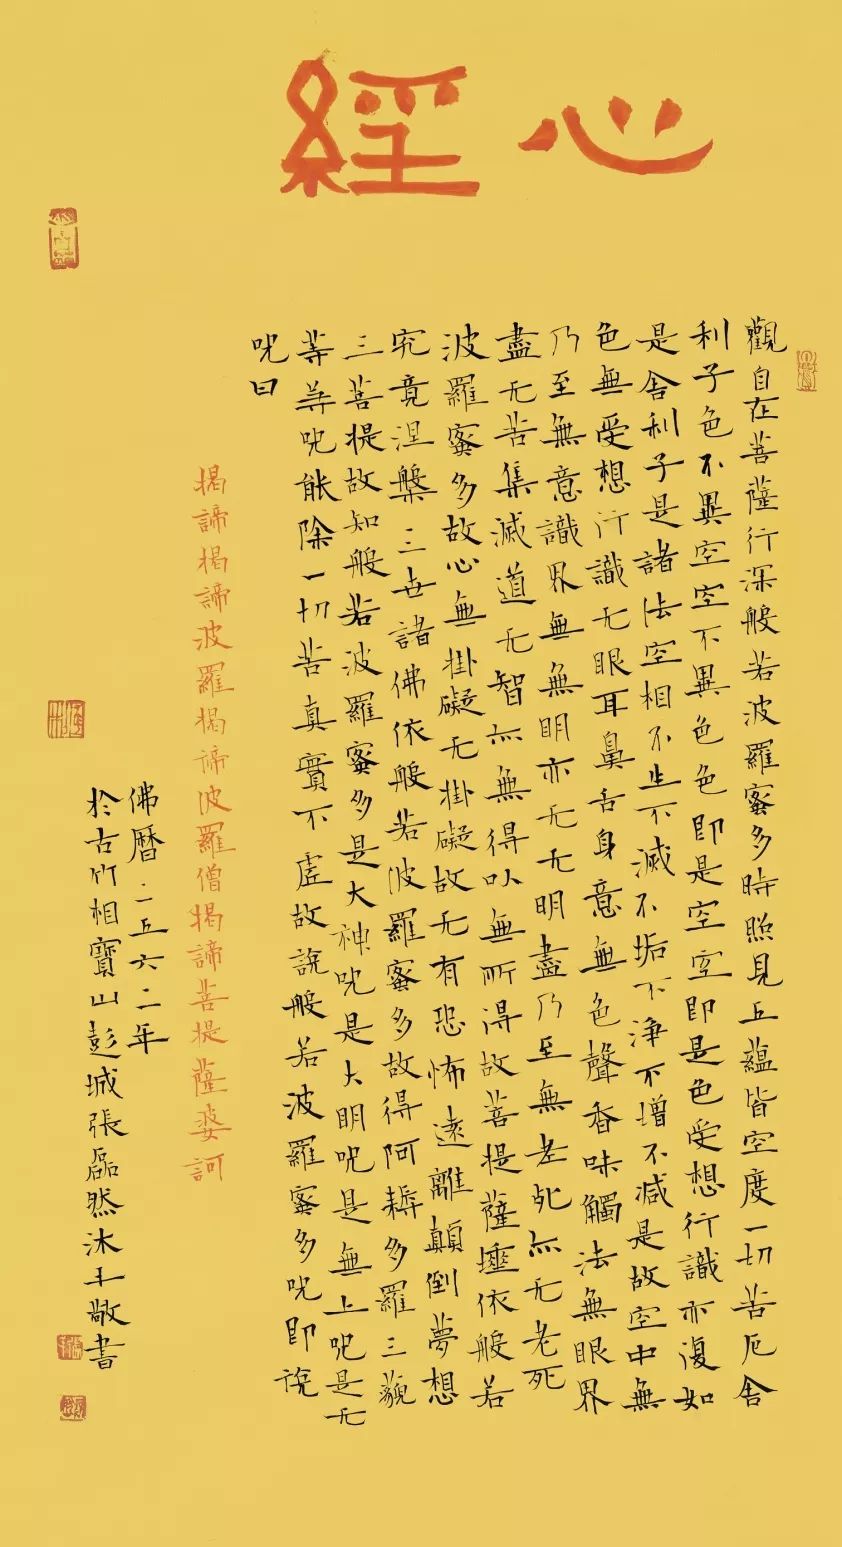 心經
觀自在菩薩行深般若波羅蜜多時照見五蘊皆空度一切苦厄舍
利子色不異空空不異色色即是空空即是色受想行識亦復如
是舍利子是諸法空相不生不滅不垢不淨不增不減是故空中無
色無受想行識无眼耳鼻舌身意無色聲香味觸法無眼界
乃至無意識界無無明亦无无明盡乃至無老死亦无老死
盡无苦集滅道无智亦無得以無所得故菩提薩埵依般若
波羅蜜多故心無掛礙无掛礙故无有恐怖遠離顛倒夢想
究竟涅槃三世諸佛依般若波羅蜜多故得阿耨多羅三藐
三菩提故知般若波羅蜜多是大神咒是大明咒是無上咒是无
等等咒能除一切苦真實不虛故說般若波羅蜜多咒即說
咒曰
揭諦揭諦波羅揭諦波羅僧揭諦菩提薩婆訶
佛曆二五六二年
於古竹相寶山彭城張磊然沐手敬書